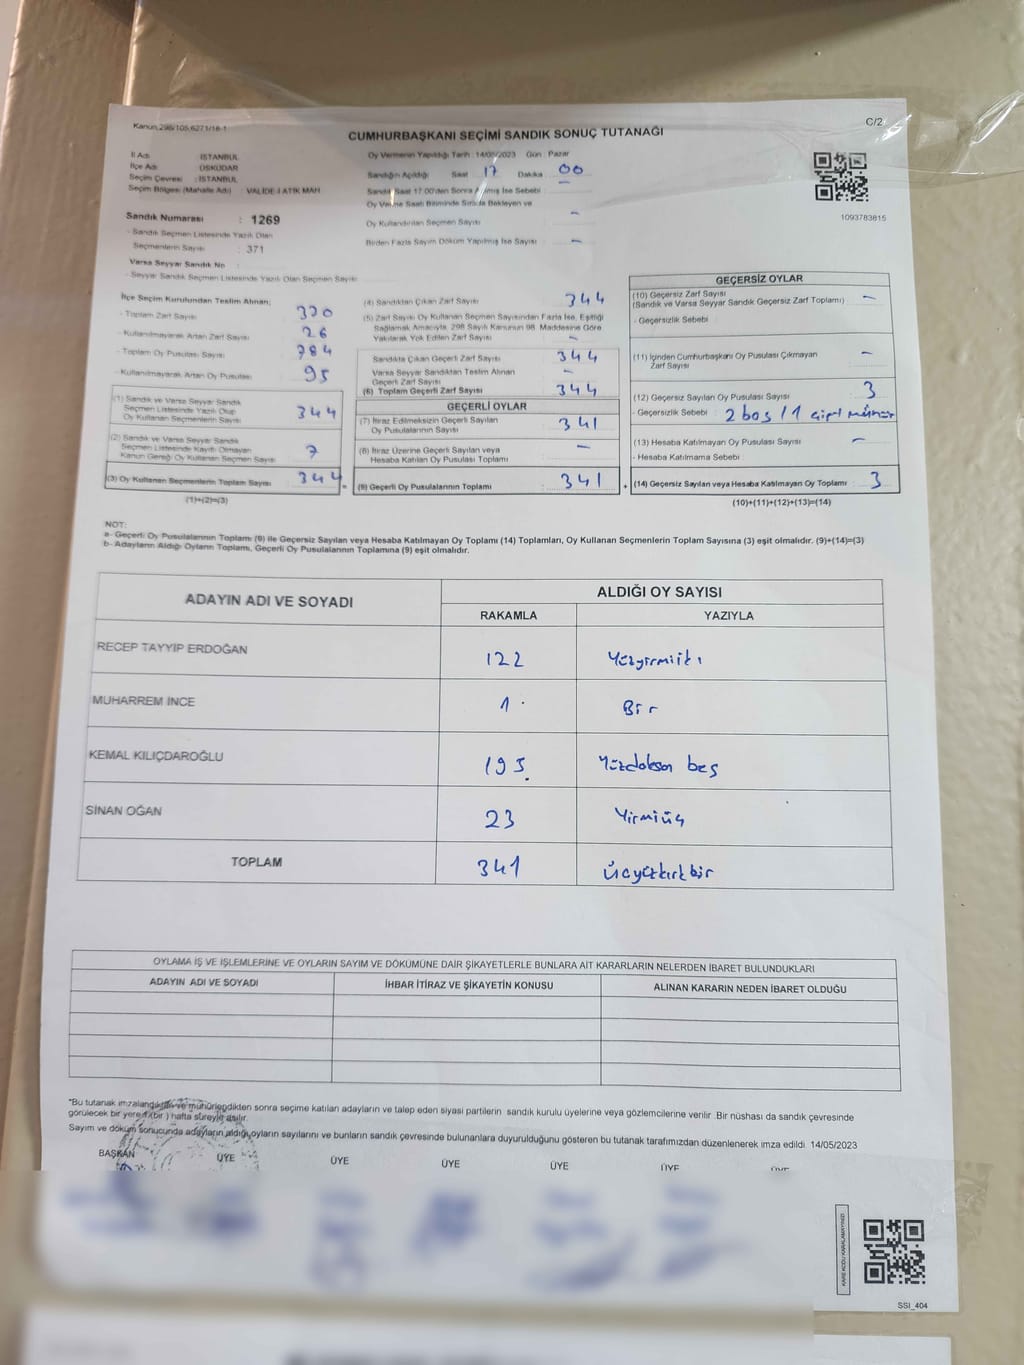 Kanun,298/105,6271/18-1
C/2
CUMHURBAŞKANI SEÇİMİ SANDIK SONUÇ TUTANAĞI
İl Adı : İSTANBUL
İlçe Adı : ÜSKÜDAR
Seçim Çevresi : İSTANBUL
Seçim Bölgesi (Mahalle Adı) : VALİDE-İ ATİK MAH
Sandık Numarası : 1269
- Sandık Seçmen Listesinde Yazılı Olan
Seçmenlerin Sayısı : 371
Varsa Seyyar Sandık No
- Seyyar Sandık Seçmen Listesinde Yazılı Olan Seçmen Sayısı
Oy Vermenin Yapıldığı Tarih : 14/05/2023 Gün : Pazar
Sandığın Açıldığı Saat 17 Dakika 00
Sandık Saat 17.00'den Sonra Açılmış İse Sebebi –
Oy Verme Saati Bitiminde Sırada Bekleyen ve
Oy Kullandırılan Seçmen Sayısı –
Birden Fazla Sayım Döküm Yapılmış İse Sayısı –
1093783815
İlçe Seçim Kurulundan Teslim Alınan;
- Toplam Zarf Sayısı 370
- Kullanılmayarak Artan Zarf Sayısı 26
- Toplam Oy Pusulası Sayısı 784
- Kullanılmayarak Artan Oy Pusulası 95
(1) Sandık ve Varsa Seyyar Sandık
Seçmen Listesinde Yazılı Olup
Oy Kullanan Seçmenlerin Sayısı 344
(2) Sandık ve Varsa Seyyar Sandık
Seçmen Listesinde Kayıtlı Olmayan
Kanun Gereği Oy Kullanan Seçmen Sayısı
(3) Oy Kullanan Seçmenlerin Toplam Sayısı 344
(1)+(2)=(3)
(4) Sandıktan Çıkan Zarf Sayısı 344
(5) Zarf Sayısı Oy Kullanan Seçmen Sayısından Fazla İse, Eşitliği
Sağlamak Amacıyla, 298 Sayılı Kanunun 98. Maddesine Göre
Yakılarak Yok Edilen Zarf Sayısı –
Sandıkta Çıkan Geçerli Zarf Sayısı 344
Varsa Seyyar Sandıktan Teslim Alınan
Geçerli Zarf Sayısı –
(6) Toplam Geçerli Zarf Sayısı 344
GEÇERLİ OYLAR
(7) İtiraz Edilmeksizin Geçerli Sayılan
Oy Pusulalarının Sayısı 341
(8) İtiraz Üzerine Geçerli Sayılan veya
Hesaba Katılan Oy Pusulası Toplamı –
= (9) Geçerli Oy Pusulalarının Toplamı 341 +
GEÇERSİZ OYLAR
(10) Geçersiz Zarf Sayısı
(Sandık ve Varsa Seyyar Sandık Geçersiz Zarf Toplamı) –
- Geçersizlik Sebebi
(11) İçinden Cumhurbaşkanı Oy Pusulası Çıkmayan
Zarf Sayısı –
(12) Geçersiz Sayılan Oy Pusulası Sayısı 3
- Geçersizlik Sebebi : 2 boş / 1
(13) Hesaba Katılmayan Oy Pusulası Sayısı –
- Hesaba Katılmama Sebebi :
(14) Geçersiz Sayılan veya Hesaba Katılmayan Oy Toplamı 3
(10)+(11)+(12)+(13)=(14)
NOT:
a- Geçerli Oy Pusulalarının Toplamı (9) ile Geçersiz Sayılan veya Hesaba Katılmayan Oy Toplamı (14) Toplamları, Oy Kullanan Seçmenlerin Toplam Sayısına (3) eşit olmalıdır. (9)+(14)=(3)
b- Adayların Aldığı Oyların Toplamı, Geçerli Oy Pusulalarının Toplamına (9) eşit olmalıdır.
ADAYIN ADI VE SOYADI
ALDIĞI OY SAYISI
RAKAMLA YAZIYLA
RECEP TAYYİP ERDOĞAN 122 Yüzyirmiiki
MUHARREM İNCE 1 Bir
KEMAL KILIÇDAROĞLU 195 Yüzdoksan beş
SİNAN OĞAN 23 Yirmiüç
TOPLAM 341 Üçyüzkırkbir
OYLAMA İŞ VE İŞLEMLERİNE VE OYLARIN SAYIM VE DÖKÜMÜNE DAİR ŞİKAYETLERLE BUNLARA AİT KARARLARIN NELERDEN İBARET BULUNDUKLARI
ADAYIN ADI VE SOYADI İHBAR İTİRAZ VE ŞİKAYETİN KONUSU ALINAN KARARIN NEDEN İBARET OLDUĞU
*Bu tutanak imzalandıktan ve mühürlendikten sonra seçime katılan adayların ve talep eden siyasi partilerin sandık kurulu üyelerine veya gözlemcilerine verilir. Bir nüshası da sandık çevresinde
görülecek bir yere 1 (bir ) hafta süreyle asılır.
Sayım ve döküm sonucunda adayların aldığı oyların sayılarını ve bunların sandık çevresinde bulunanlara duyurulduğunu gösteren bu tutanak tarafımızdan düzenlenerek imza edildi. 14/05/2023
BAŞKAN ÜYE ÜYE ÜYE ÜYE ÜYE ÜYE
KARE KODU KARALAMAYINIZ!
SSI_404